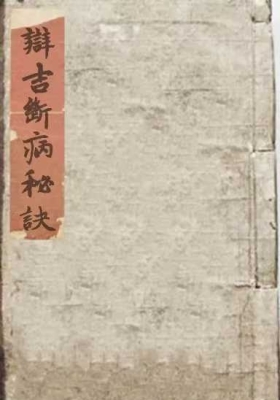 辯吉斷病秘訣